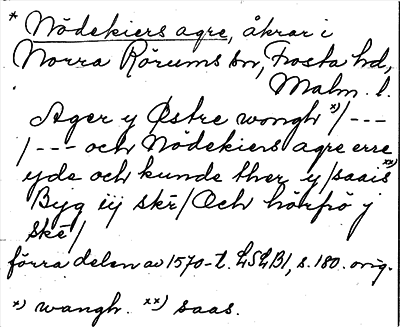 * Nödekiers agre, åkrar i
Norra Rörums sn, Frosta hd,
Malm. l.
Ager y Østre wongh x)/---
/--- och Nödekiers agre erre
yde och kunde ther y/saais xx)
Byg iij skr/Och hörfrö j
skr/
förra delen av 1570-t. LSLB1, s. 180. orig.
x) wangh. xx) saas.